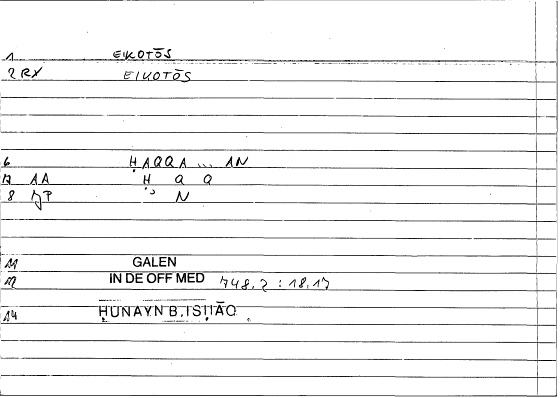 1 EIKOTŌS
2 RX EIKOTŌS
6 ḤAQQA ... AN
12 AA Ḥ Q Q
8 JP N
11 GALEN
12 IN DE OFF MED 748,2 : 18,17
14 ḤUNAYN B. ISḤĀQ